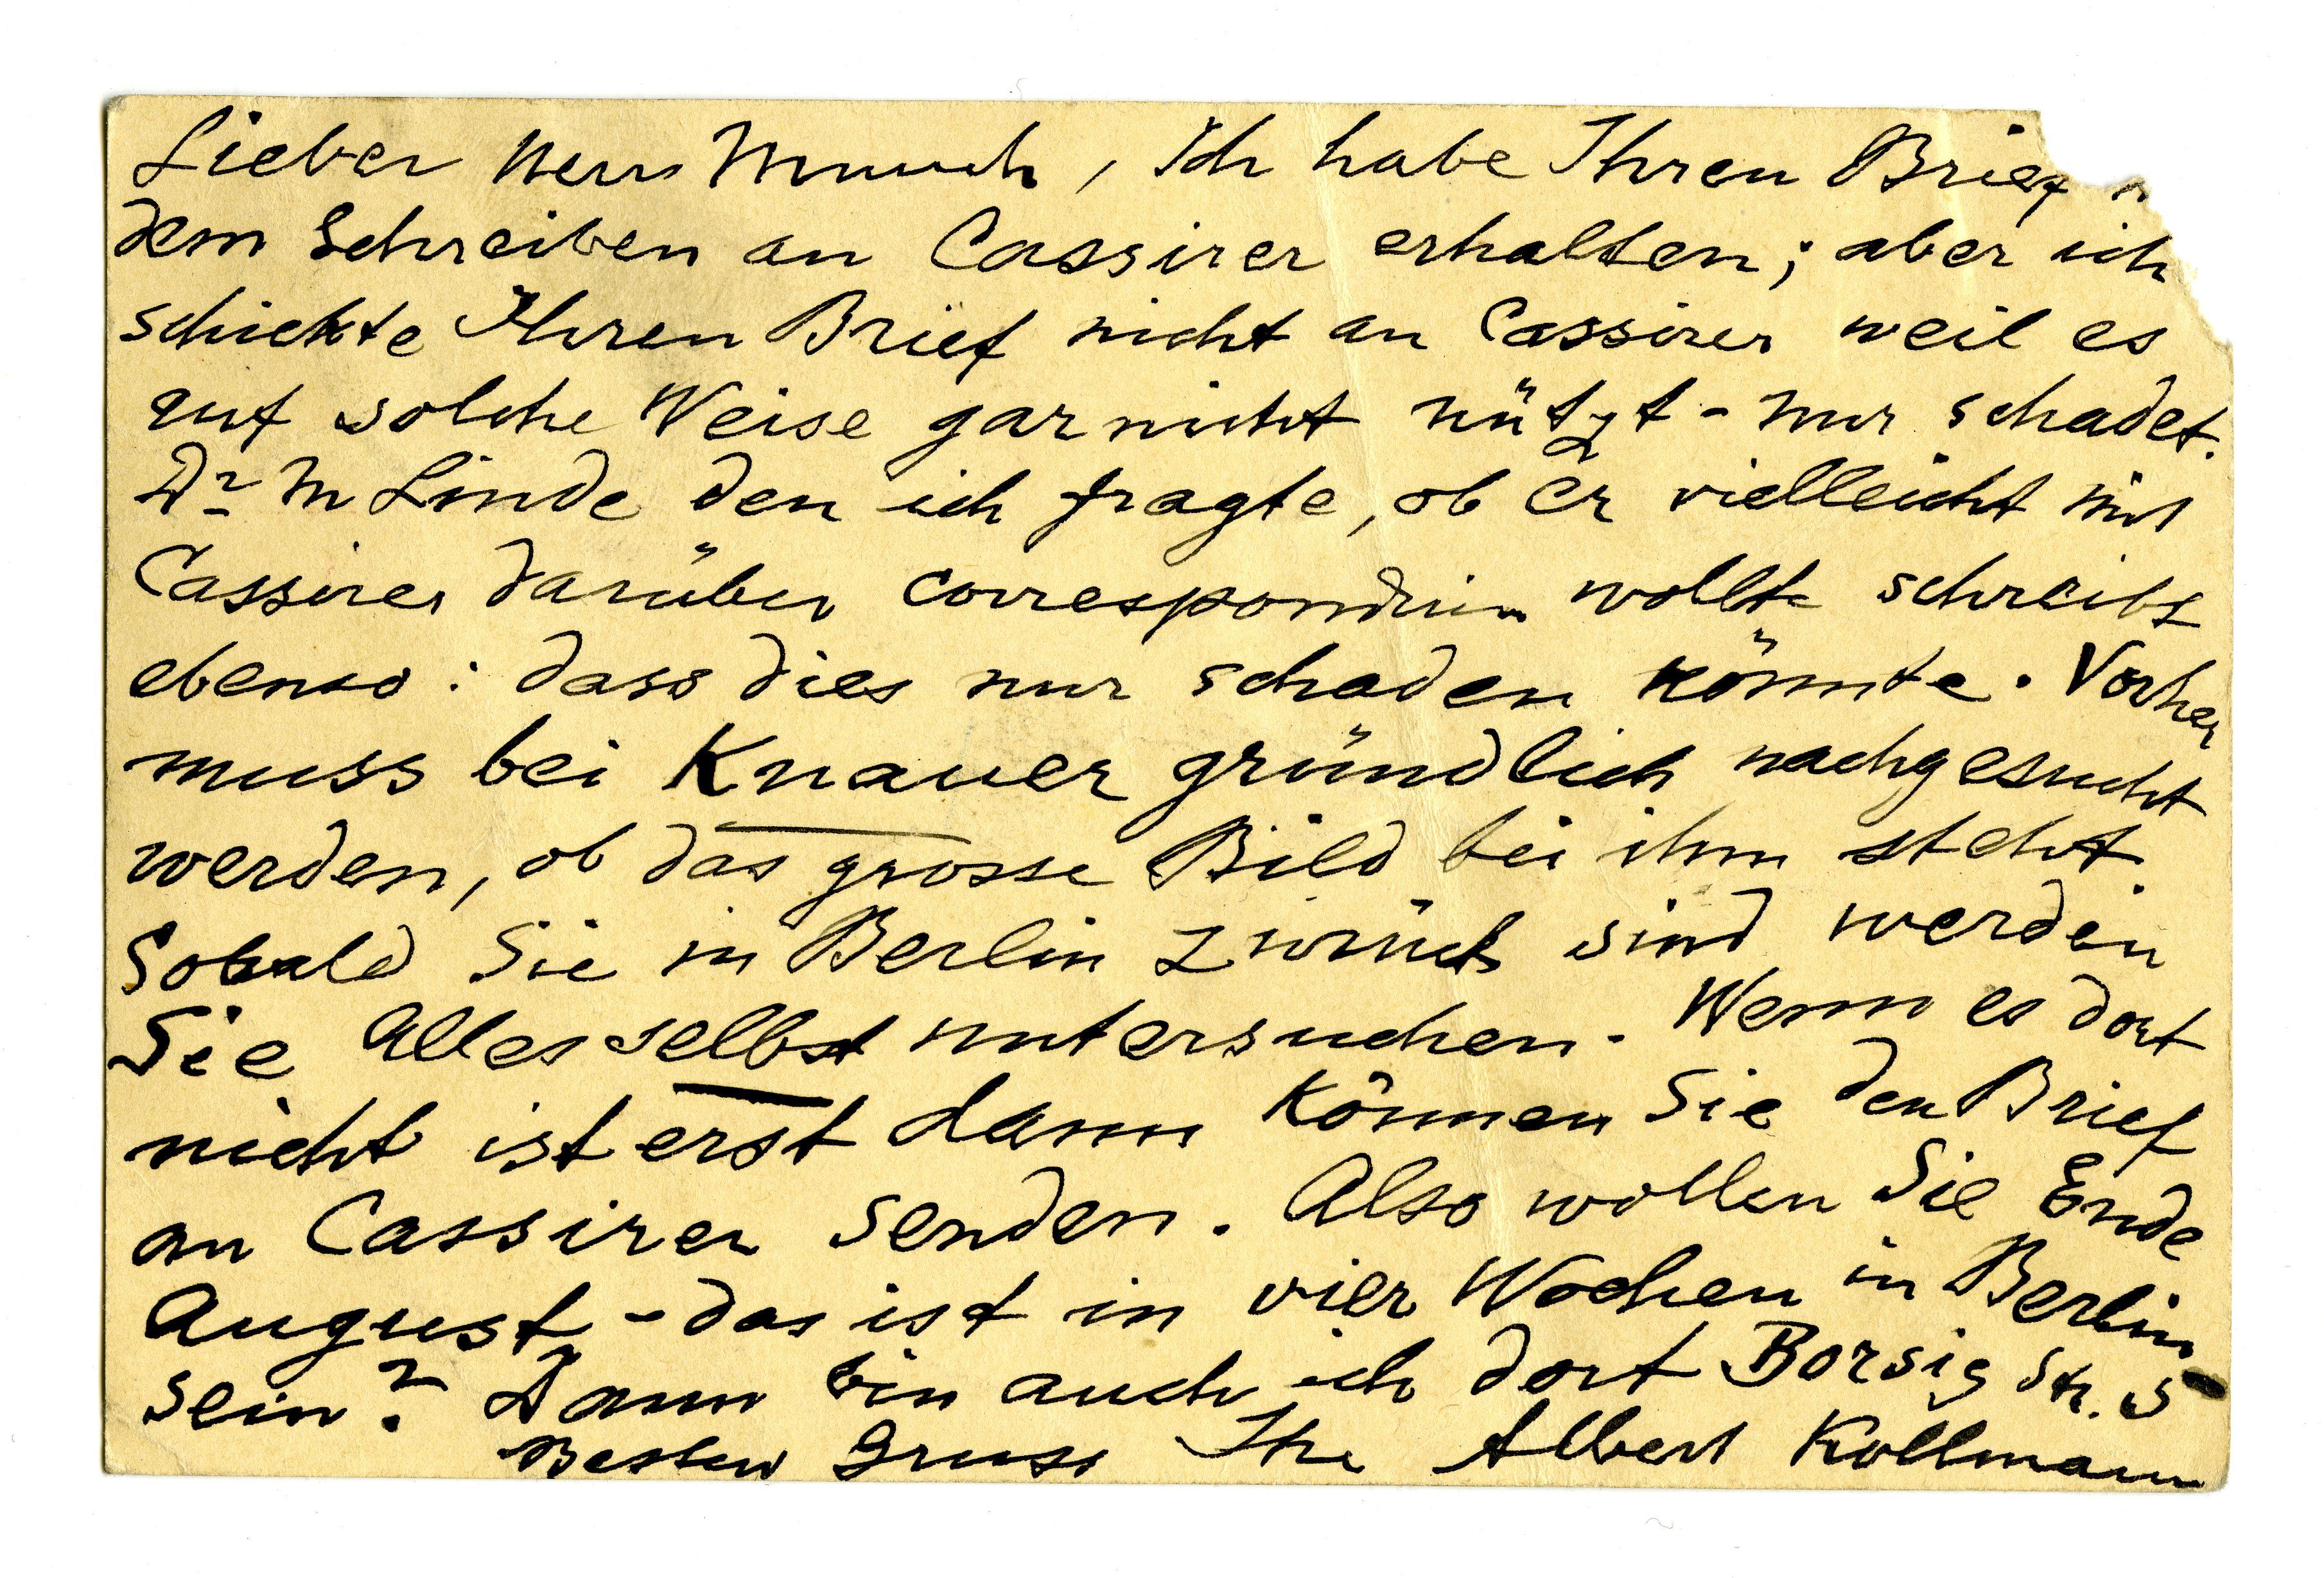 Lieber Herr Munch, Ich habe Ihren Brief
dem Schreiben an Cassirer erhalten; aber ich
schickte Ihren Brief nicht an Cassirer weil es
auf solche Weise gar nicht nützt - nur schadet.
Dr M Linde den ich fragte, ob Er vielleicht mit
Cassirer darüber correspondiren wollte schreibt
ebenso: dass dies nur schaden könnte. Vorher
muss bei Knauer gründlich nachgesucht
werden, ob das grosse Bild bei ihm steht.
Sobald Sie in Berlin zurück sind werden
Sie Alles selbst untersuchen. Wenn es dort
nicht ist erst dann können Sie den Brief
an Cassirer senden. Also wollen Sie Ende
August - das ist in vier Wochen in Berlin
sein? Dann bin auch ich dort Borsig Str. 5
Besten Gruss Ihr Albert Kollmann